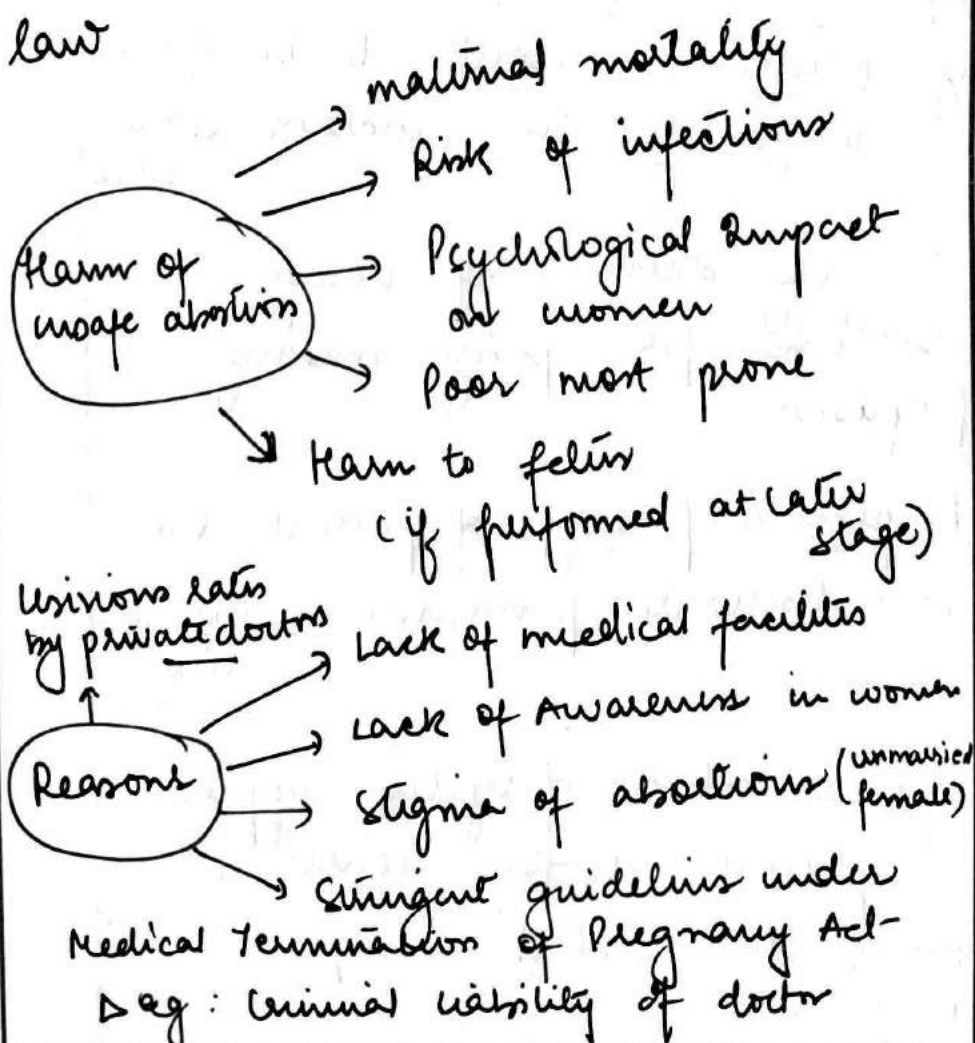 law
maternal mortality
Risk of infections
Harm of
unsafe abortions
Psychological Impact
on women
Poor most prone
Harm to fetus
(if performed at later
stage)
Usirious rates
by private doctors
Lack of medical facilities
Lack of Awareness in women
Reasons
Stigma of abortions (unmarried
female)
Stringent guidelines under
Medical Termination of Pregnancy Act
eg: Criminal liability of doctor